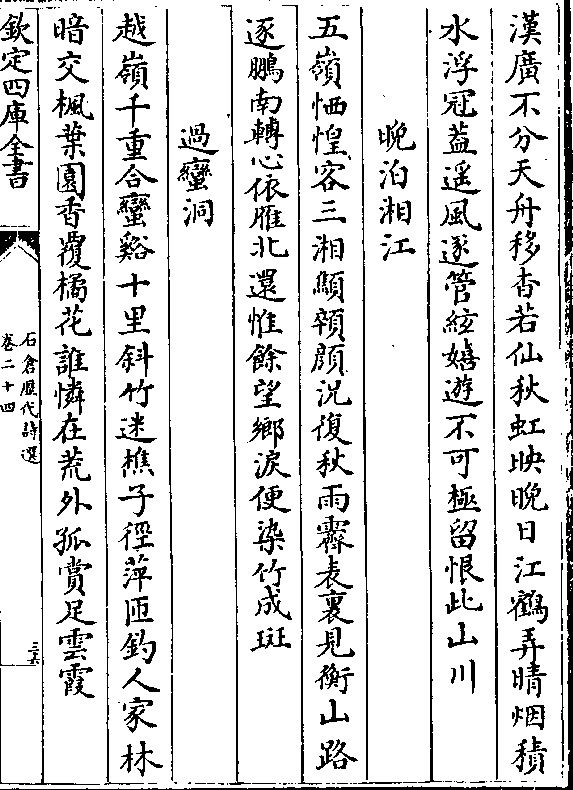 漢廣不分天舟移杳若仙秋虹映晚日江鶴弄晴烟積
水浮冠蓋遥風逐管絃嬉遊不可極留恨此山川
晚泊湘江
五嶺恓惶客三湘顦顇顔況復秋雨霽表裏見衡山路
逐鵬南轉心依雁北還惟餘望鄉淚便染竹成斑
過蠻洞
越嶺千重合蠻谿十里斜竹迷樵子徑萍匝釣人家林
暗交楓葉園香覆橘花誰憐在荒外孤賞足雲霞
欽定四庫全書
石倉歷代詩選
卷二十四